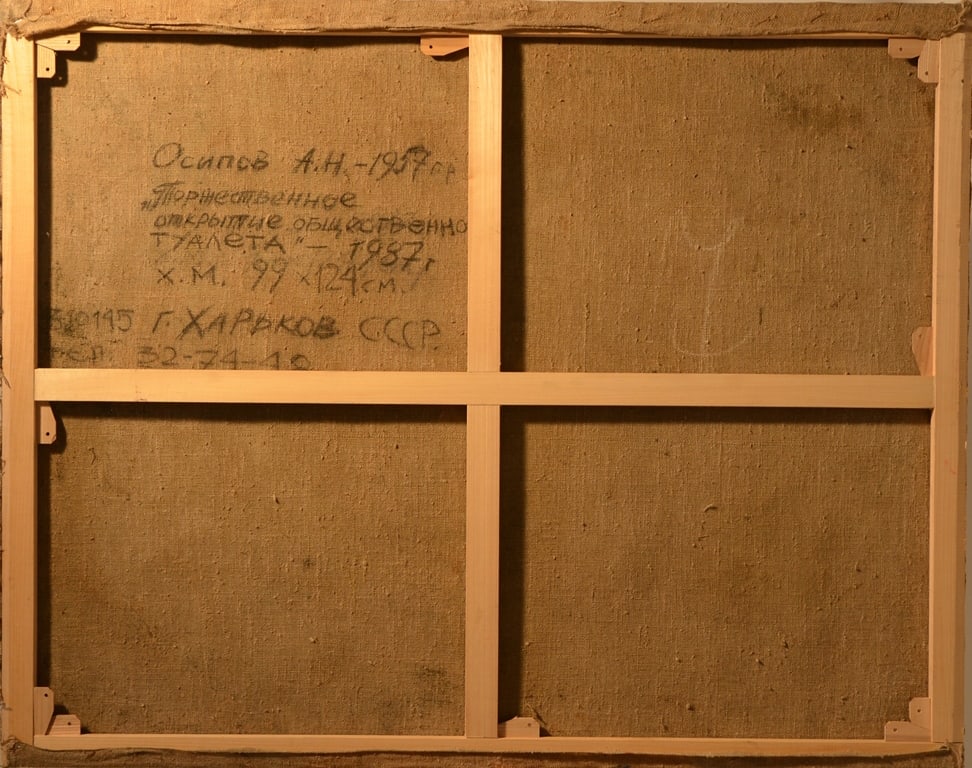 Осипов А.Н. - 1957 г.р.
„Торжественное
открытие общественно
туалета" - 1987 г
х.м. 99 х 124 см.
310195 г. Харьков СССР.
тел. 32-74-49